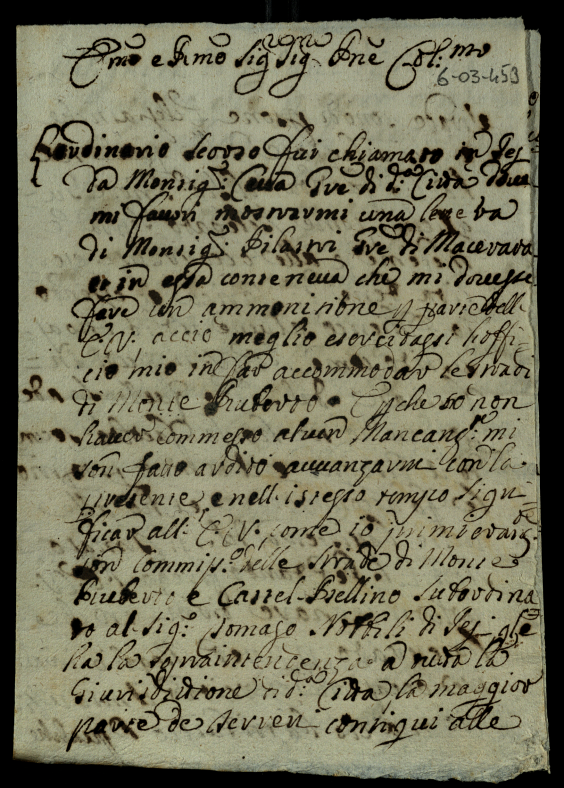 Emo e Rmo Sig.r Sig.r Pne Col:mo
6-03-459
L'ordinario scorso fui chiamato in Jesi
da Monsig.r Gve di d.a Città dove
mi favorì mostrarmi una lettera
di Monsig.r Pilastri Gve di Macerata
et in essa conteneva che mi dovesse
fare un ammonitione p parte dell
E. V. acciò meglio esercitassi l'offi
cio mio in far accommodar le stradi
di Monte Ruberto e p che so non
haver commesso alcun Mancam.to mi
son fatto ardito avvanzarmi con la
presente, e nell istesso tempo signi
ficar all. E. V. come io
son Commiss.o delle strade di Monte
Ruberto e Castel Bellino subordina
to al Sig.r Tomaso Nobili di Jesi
ha la sopraintendenza a tutta la
Giurisditione di d.a Città la maggior
parte de terreni contigui alle